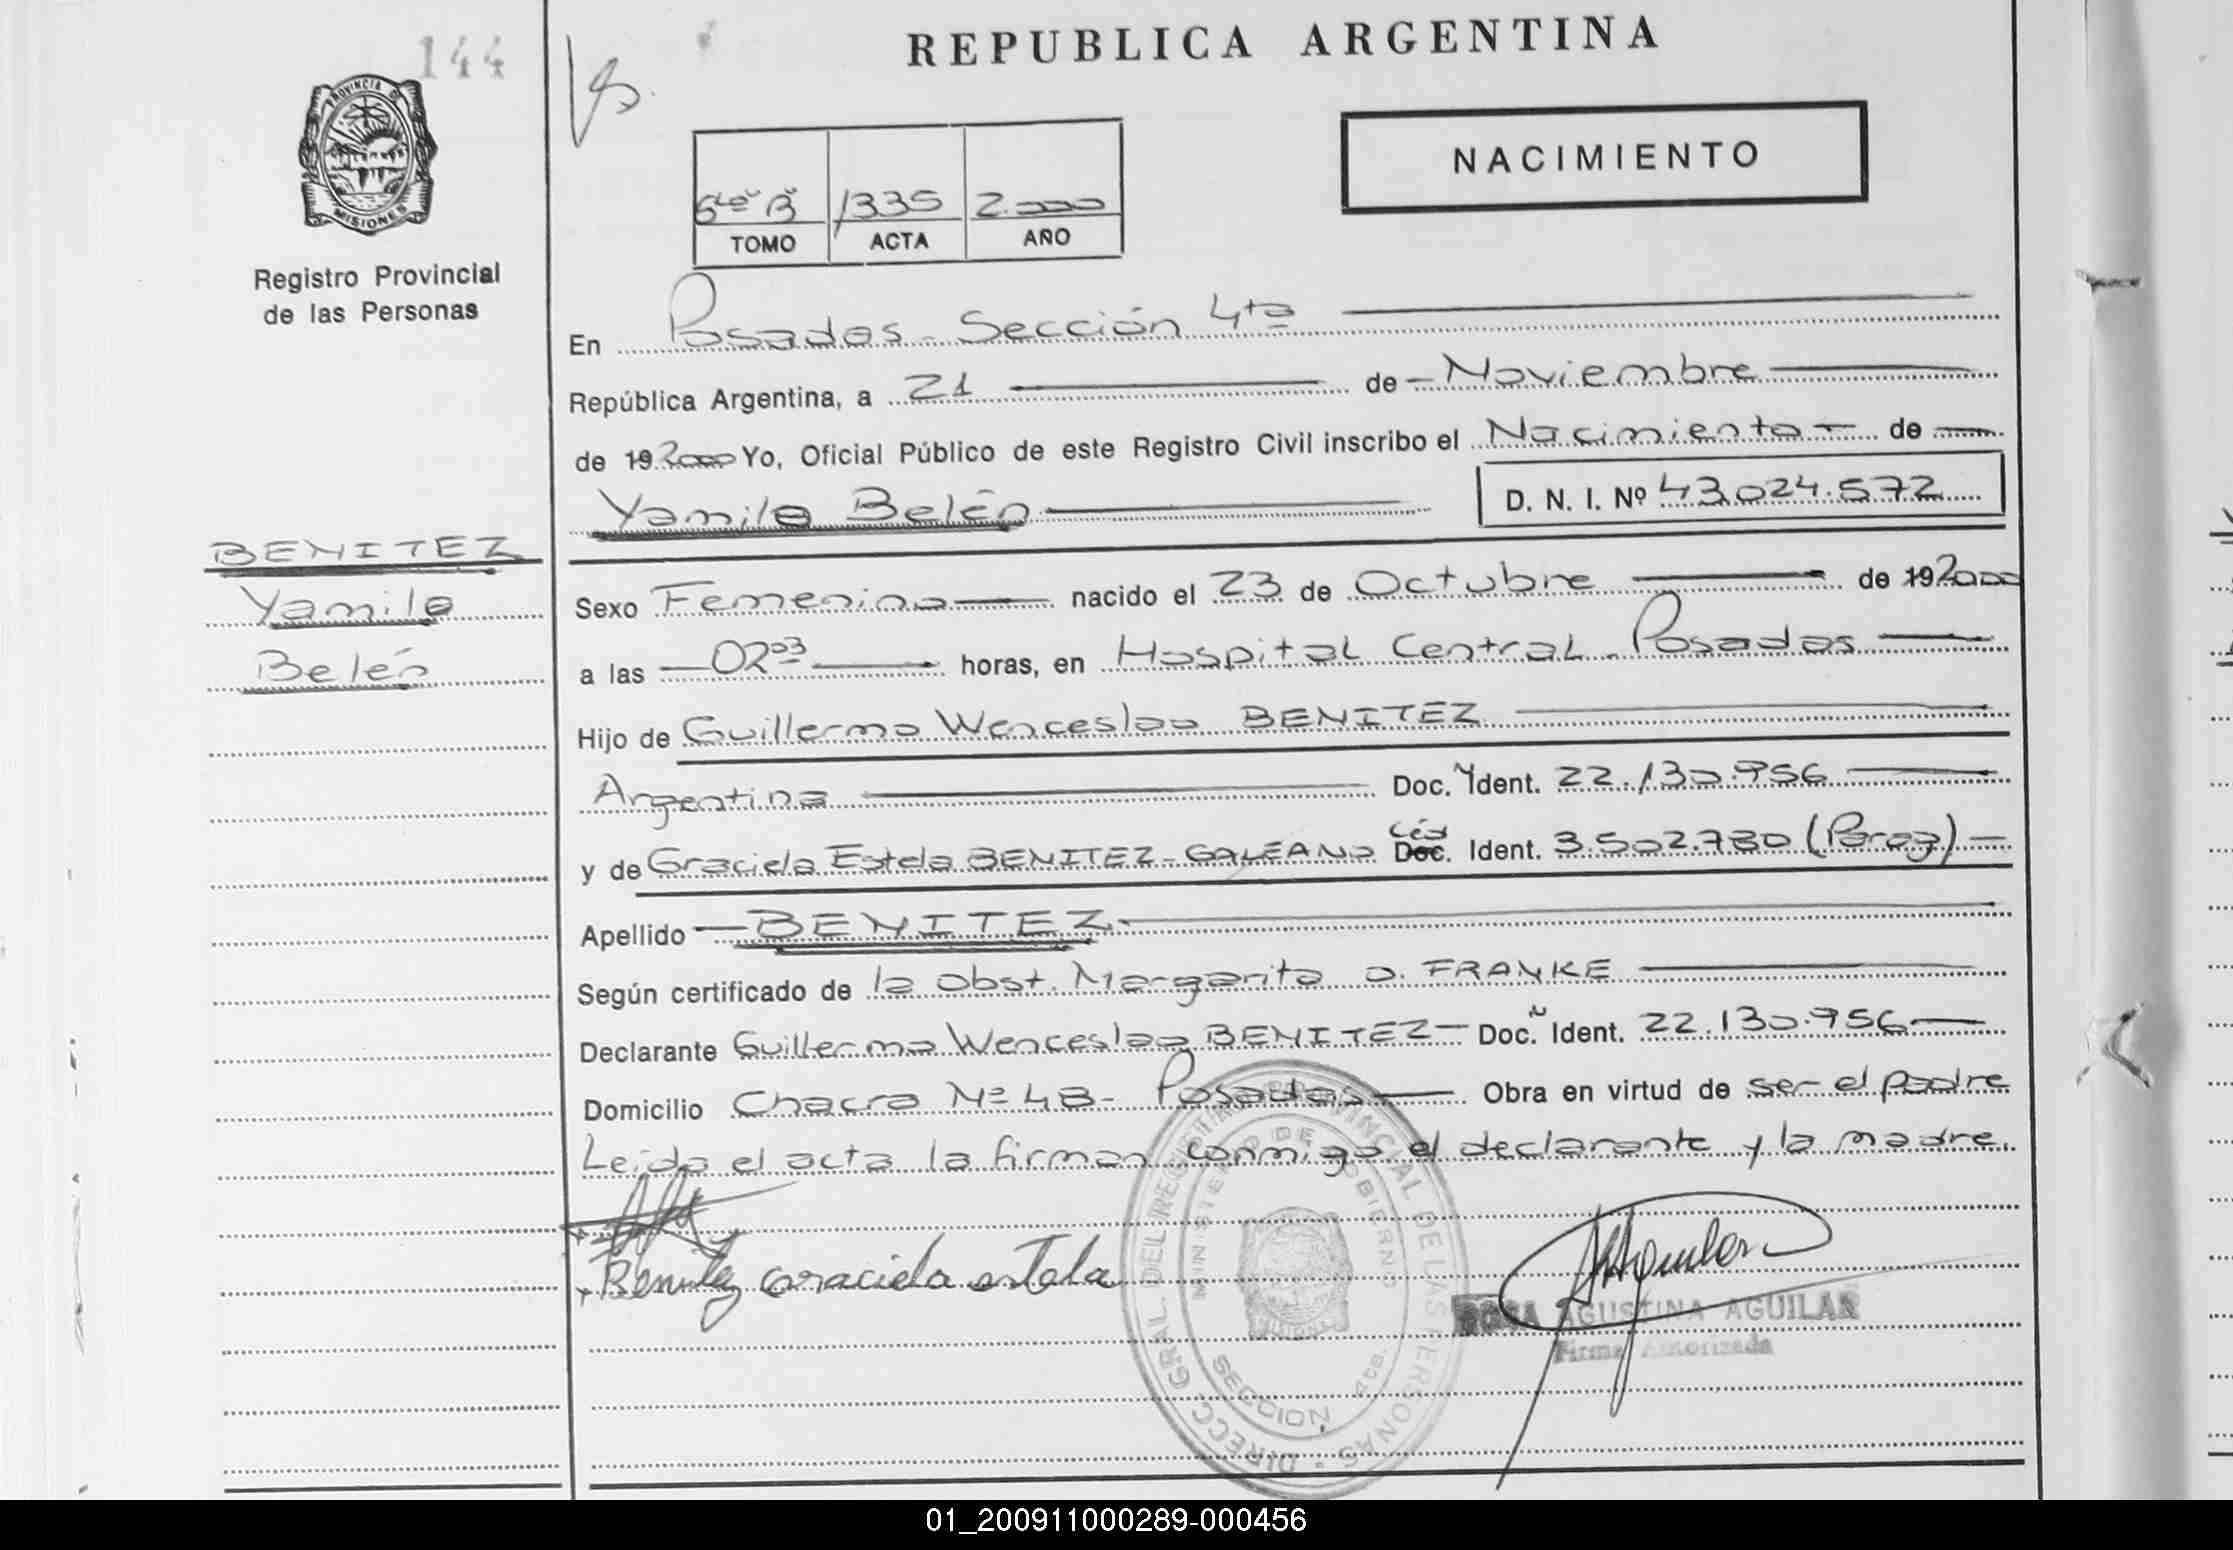 144
REPUBLICA ARGENTINA
NACIMIENTO
6to B 1335 2.000
TOMO ACTA AÑO
Registro Provincial
de las Personas
PROVINCIA DE
MISIONES
En Posadas - Sección 4ta
República Argentina, a 21 de Noviembre
de 19 2000 Yo, Oficial Público de este Registro Civil inscribo el Nacimiento de
Yamila Belén D. N. I. Nº 43.024.572
BENITEZ
Yamila
Belén
Sexo Femenino nacido el 23 de Octubre de 19 2000
a las 02 03 horas, en Hospital Central - Posadas
Hijo de Guillermo Wenceslao BENITEZ
Argentina Doc. Ident. 22.130.956
y de Graciela Estela BENITEZ - GALEANO Céd Doc. Ident. 3.502.780 (Parag)
Apellido BENITEZ
Según certificado de la Obst. Margarita O. FRANKE
Declarante Guillermo Wenceslao BENITEZ - Doc. Ident. 22.130.956
Domicilio Chacra Nº 48 - Posadas Obra en virtud de ser el padre
Leída el acta la firman conmigo el declarante y la madre.
Benitez Graciela estela
DIRECC. GRAL. DEL REGISTRO PROVINCIAL DE LAS PERSONAS
MINISTERIO DE GOBIERNO
SECCION 4ta.
ROSA AGUSTINA AGUILAR
Firma Autorizada
01_200911000289-000456